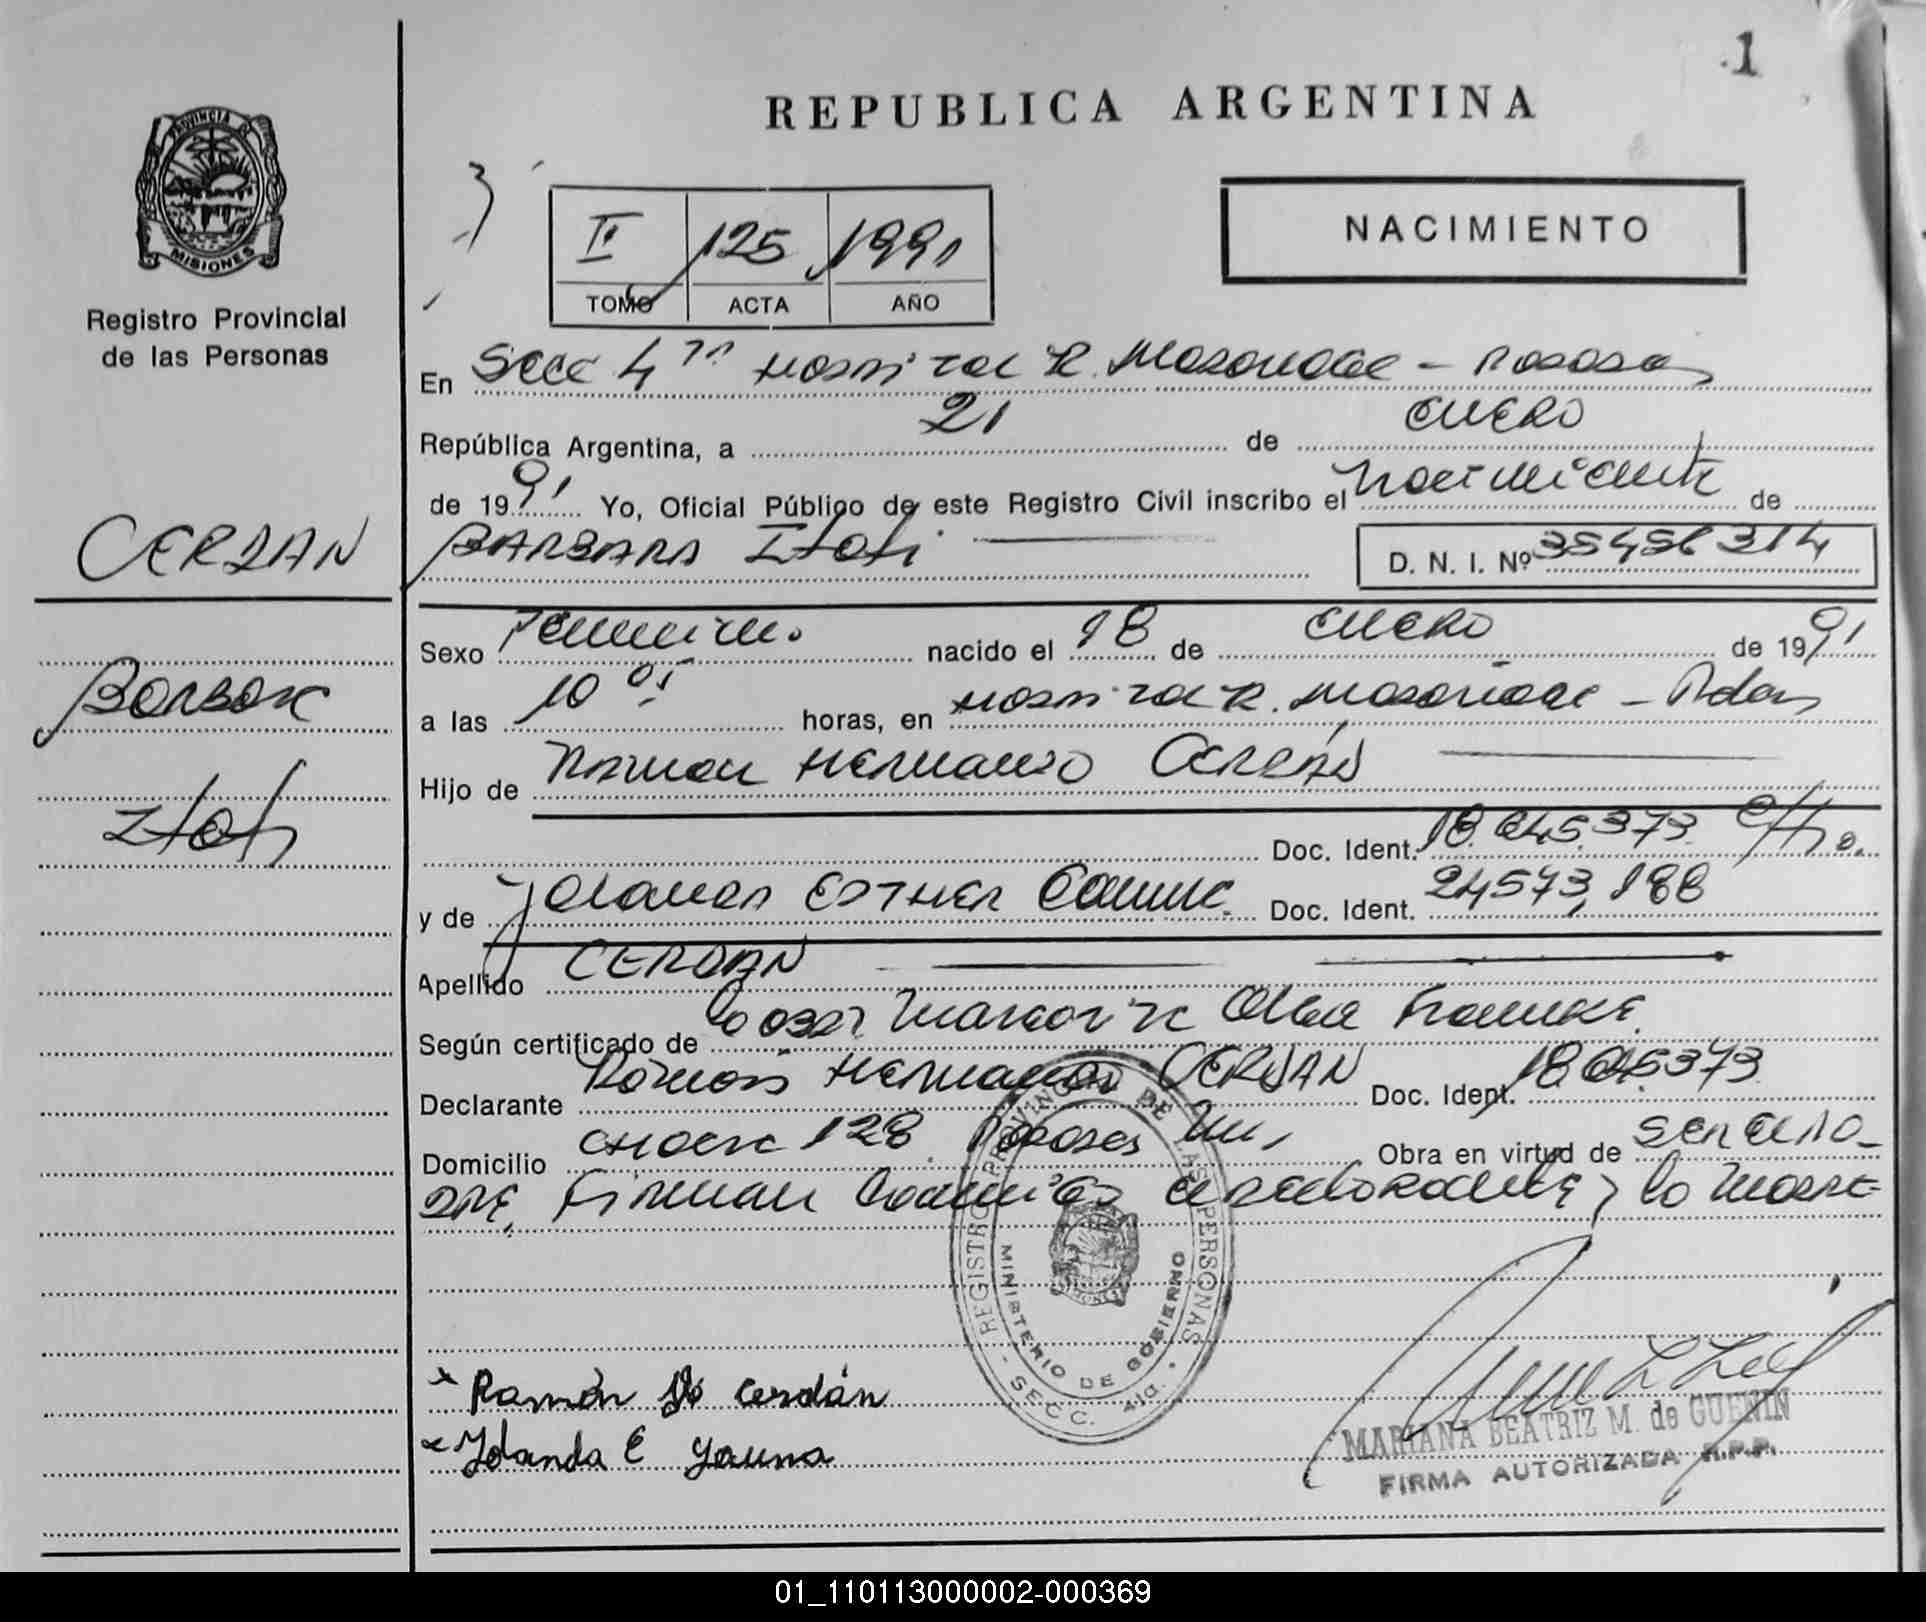 1
REPUBLICA ARGENTINA
PROVINCIA DE
MISIONES
Registro Provincial
de las Personas
NACIMIENTO
II 125 1991
TOMO ACTA AÑO
En Secc 4ta Hospital R. Madariaga - Posadas
República Argentina, a 21 de ENERO
de 1991 Yo, Oficial Público de este Registro Civil inscribo el Nacimiento de
BARBARA Itati
D. N. I. Nº 35456314
CERDAN
Barbara
Itati
Sexo Femenino nacido el 18 de ENERO de 1991
a las 10 05 horas, en Hospital R. Madariaga - Pdas
Hijo de Ramon HERNANDO CERDAN
Doc. Ident. 18.045.373
y de Yolanda ESTHER Doc. Ident. 24573,188
Apellido CERDAN
Según certificado de
Declarante Ramon HERNANDO CERDAN Doc. Ident. 18.045.373
Domicilio 128 Posadas Mnes, Obra en virtud de ser el pa-
dre, Firman el declarante y la madre
REGISTRO PROVINCIAL DE LAS PERSONAS
MINISTERIO DE GOBIERNO
SECC. 4ta.
Ramón Ho Cerdán
Yolanda E
MARIANA BEATRIZ M. de GUENIN
FIRMA AUTORIZADA R.P.P.
01_110113000002-000369